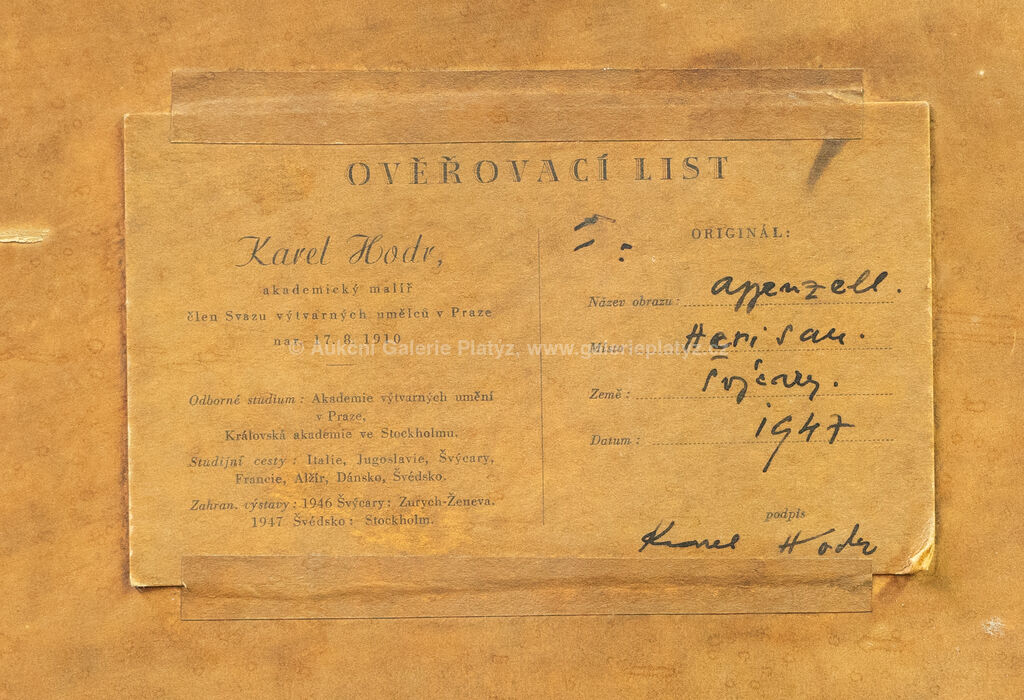 OVĚŘOVACÍ LIST
Karel Hodr,
akademický malíř
člen Svazu výtvarných umělců v Praze
nar. 17. 8. 1910
Odborné studium : Akademie výtvarných umění
v Praze,
Královská akademie ve Stockholmu.
Studijní cesty : Italie, Jugoslavie, Švýcary,
Francie, Alžír, Dánsko, Švédsko.
Zahran. výstavy : 1946 Švýcary : Zurych-Ženeva.
1947 Švédsko : Stockholm.
ORIGINÁL:
Název obrazu : Appenzell.
Místo : Herisau.
Země : Švýcary.
Datum : 1947
podpis
Karel Hodr
© Aukční Galerie Platýz, www.galerieplatyz.cz